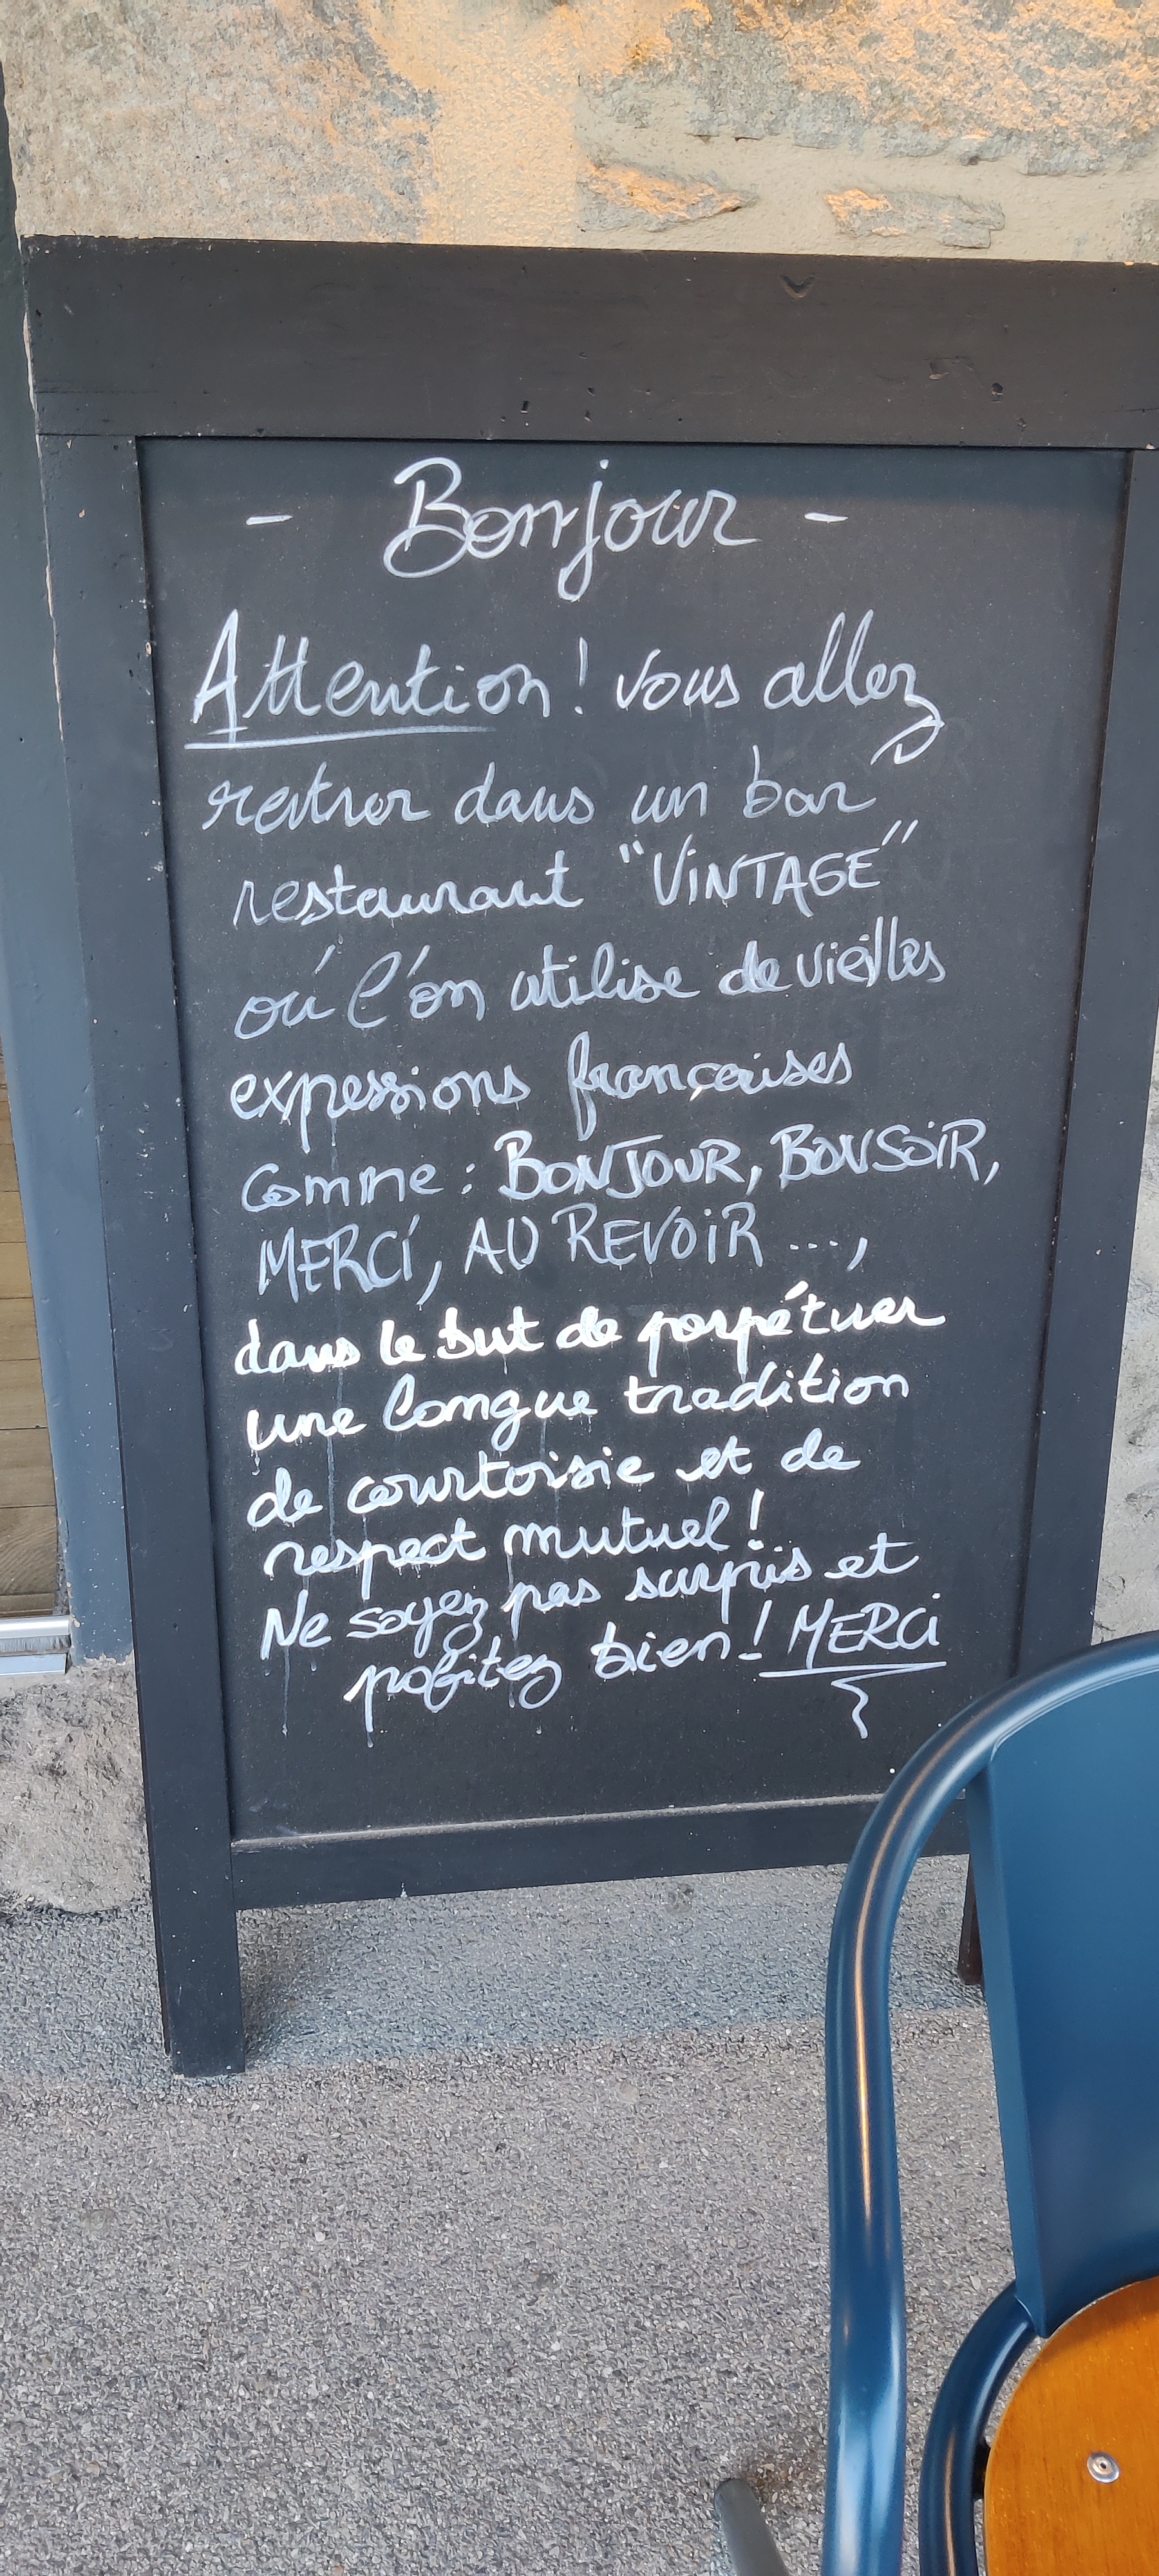 - Bonjour -
Attention ! vous allez
rentrer dans un bar
restaurant "VINTAGE"
où l'on utilise de vieilles
expressions françaises
comme : BONJOUR, BONSOIR,
MERCI, AU REVOIR ...,
dans le but de perpétuer
une longue tradition
de courtoisie et de
respect mutuel !
Ne soyez pas surpris et
profitez bien ! MERCI